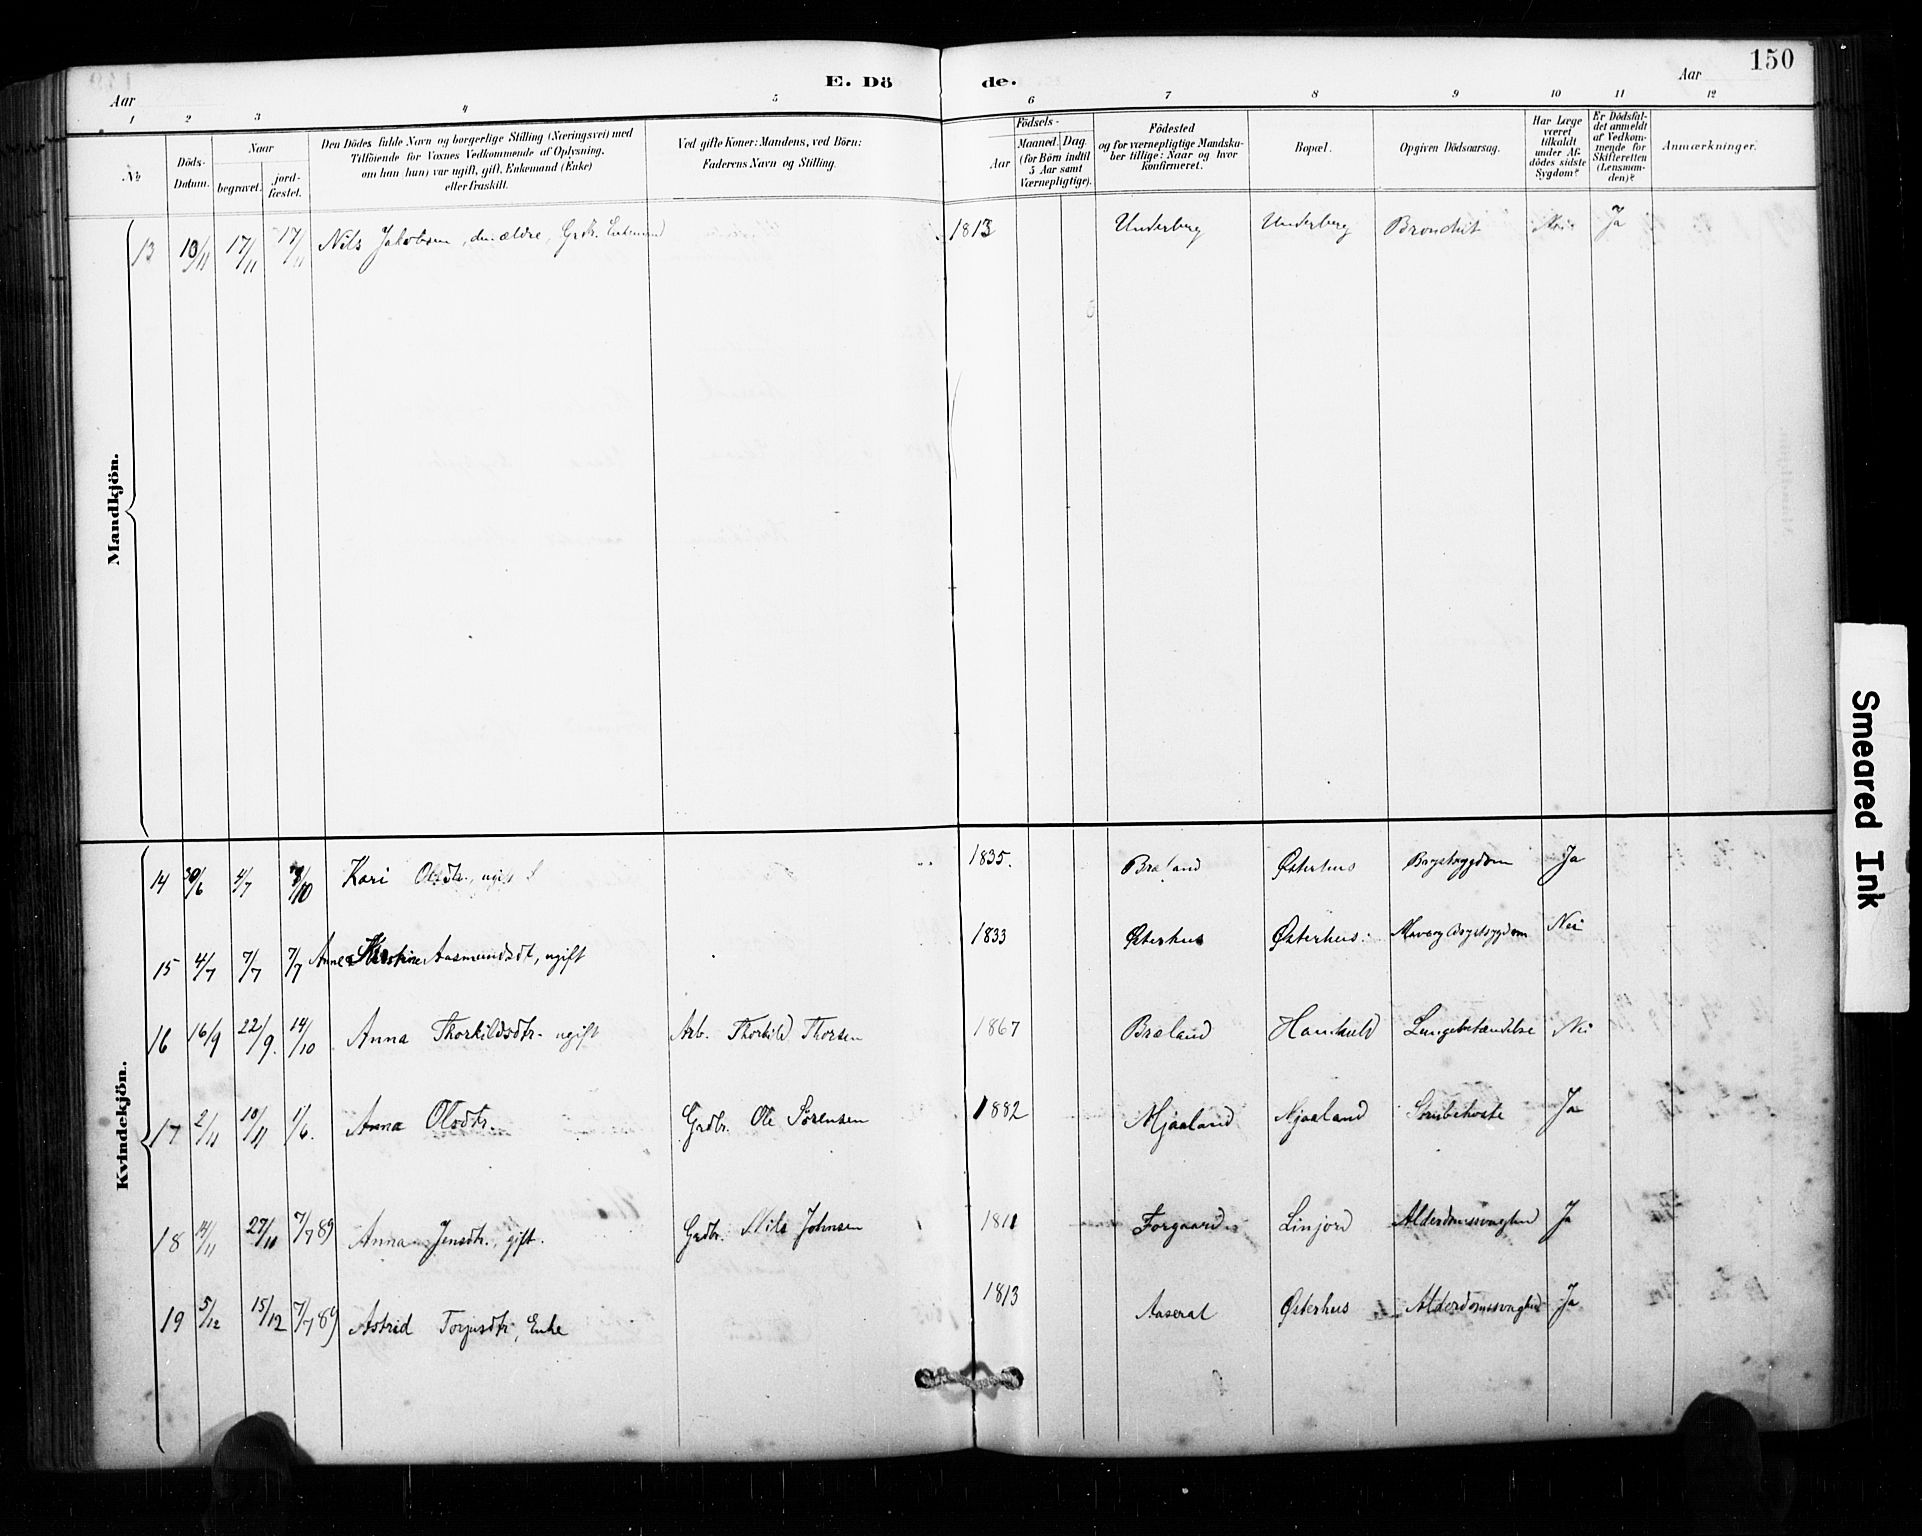 150
E. Dö de.
Aar Aar
1 2 3 4 5 6 7 8 9 10 11 12
№
Döds-
Datum.
Naar
begravet.
jord-
fæstet.
Den Dödes fulde Navn og borgerlige Stilling (Næringsvei) med
Tilföiende for Voxnes Vedkommende af Oplysning,
om han (hun) var ugift, gift, Enkemand (Enke)
eller fraskilt.
Ved gifte Koner: Mandens, ved Börn:
Faderens Navn og Stilling.
Födsels-
Aar
Maaned. Dag.
(for Börn indtil
5 Aar samt
Værnepligtige).
Födested
og for værnepligtige Mandska-
ber tillige: Naar og hvor
konfirmeret.
Bopæl.
Opgiven Dödsaarsag.
Har Læge
været
tilkaldt
under Af-
dödes sidste
Sygdom?
Er Dödsfal-
det anmeldt
af Vedkom-
mende for
Skifteretten
(Lensman-
den)?
Anmærkninger.
Mandkjön.
13 13/11 17/11 17/11 Nils Jakobsen, den ældre, Grdbr. Enkemand 1813 Underberg Underberg Bronchit Nei Ja
Kvindekjön.
14 30/6 4/7 /10 Kari Olsdtr., ugift 1835. Bræland Østerhus Brystsygdom Ja
15 4/7 7/7 7/7 Anne Kirstine Aasmundsdt, ugift 1833 Østerhus Østerhus. Brystsygdom Nei
16 16/9 22/9. 14/10 Anna Thorkildsdtr. ugift Arb. Thorkild Thorsen 1867 Bræland Lungebetændelse Nei
17 2/11 10/11 1/6. Anna Olsdtr. Grdbr. Ole Sørensen 1882 Mjaaland Mjaaland Strubehoste Ja
18 14/11 27/11 7/7 89 Anna Jensdtr., gift. Grdbr. Nils Johnsen 1811 Forgaard Linjord Alderdomssvaghed Ja
19 5/12 15/12 7/7 89 Astrid Torjusdtr, Enke 1813 Aaseral Østerhus Alderdomssvaghed Ja
Smeared Ink